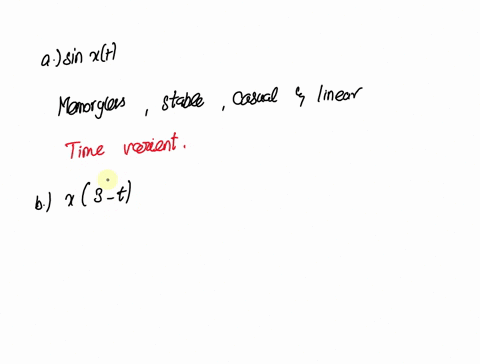 a.) sin x(t)
Memoryless, stable, Casual & linear
Time varient.
b.) x(3-t)